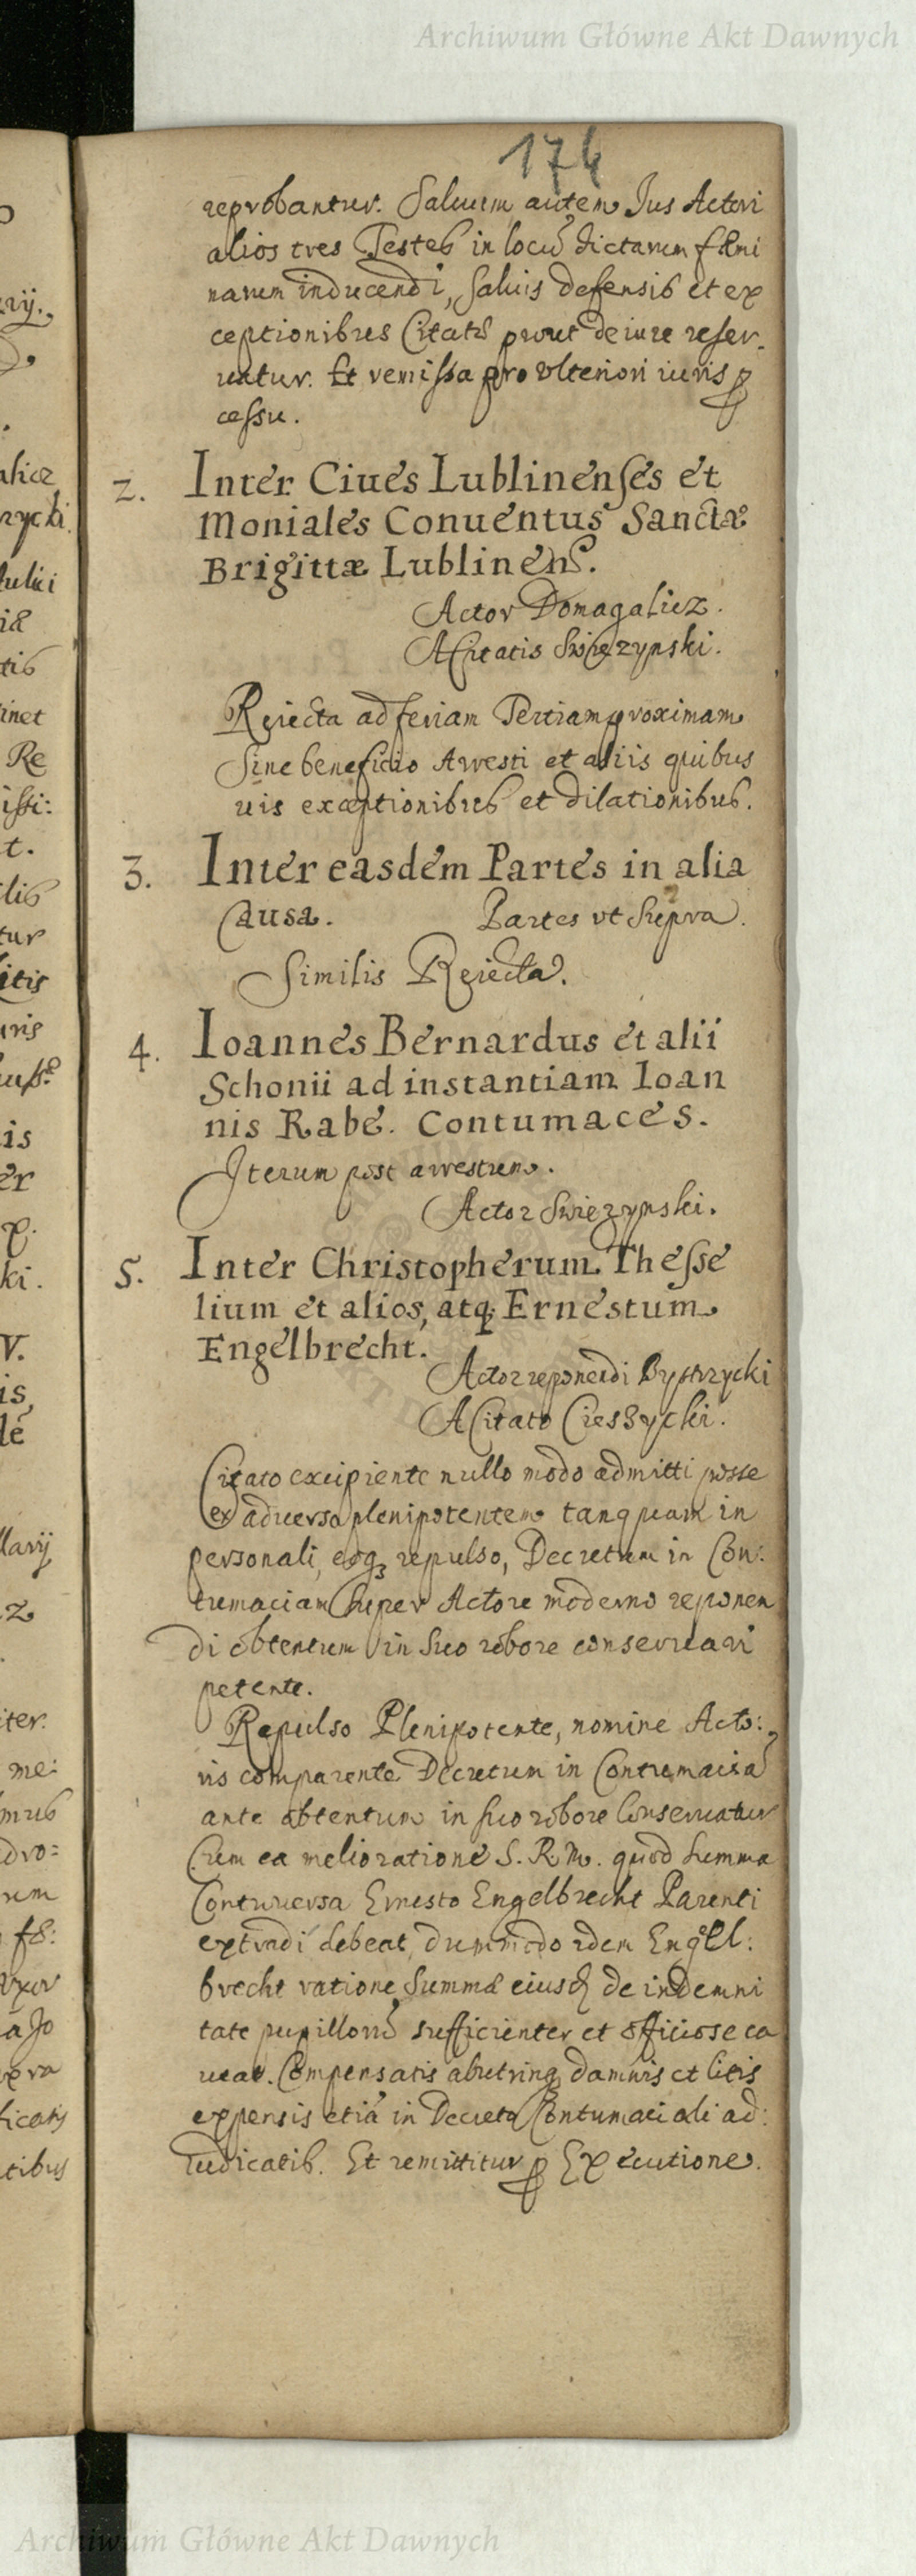 Archiwum Główne Akt Dawnych
174
reprobantur. Saluum autem Jus Actori
alios tres Testes in locũ dictarum fæmi
narum inducendi, Saluis defensis et ex
ceptionibus Citatis prout de iure reser-
uatur. Et remissa pro vlteriori iuris p
cessu.
2. Inter Ciues Lublinenses et
Moniales Conuentus Sanctæ
Brigittæ Lublinens.
Actor Domagalicz.
A Citatis Swięzynski.
Reiecta ad feriam Tertiam proximam
Sine beneficio Arresti et aliis quibus
uis exceptionibus et dilationibus.
3. Inter easdem Partes in alia
Causa. Partes vt Supra.
Similis Reiecta.
4. Ioannes Bernardus et alii
Schonii ad instantiam Ioan
nis Rabe. Contumaces.
Iterum post arrestum.
Actor Swięzynski.
5. Inter Christopherum Thesse
lium et alios, atq; Ernestum
Engelbrecht.
Actor reponendi Bystrzycki
A Citato Cieszycki.
Citato excipiente nullo modo admitti posse
ex aduerso plenipotentem tanquam in
personali, eoq; repulso, Decretum in Con:
tumaciam super Actore moderno reponen
di obtentum in suo robore conseruari
petente.
Repulso Plenipotente, nomine Acto:
ris comparente Decretum in Contumaciã
ante obtentum in suo robore Conseruatur
Cum ea melioratione S. R. M. quod Summa
Controuersa Ernesto Engelbrecht Parenti
extradi debeat, dummodo idem Engel:
brecht ratione Summæ eiusd de indemni
tate pupillorũ sufficienter et officiose ca
ueat. Compensatis abutrinq; damnis et litis
expensis etiã in Decreto Contumaciali ad:
iudicatis. Et remittitur p Executione.
Archiwum Główne Akt Dawnych